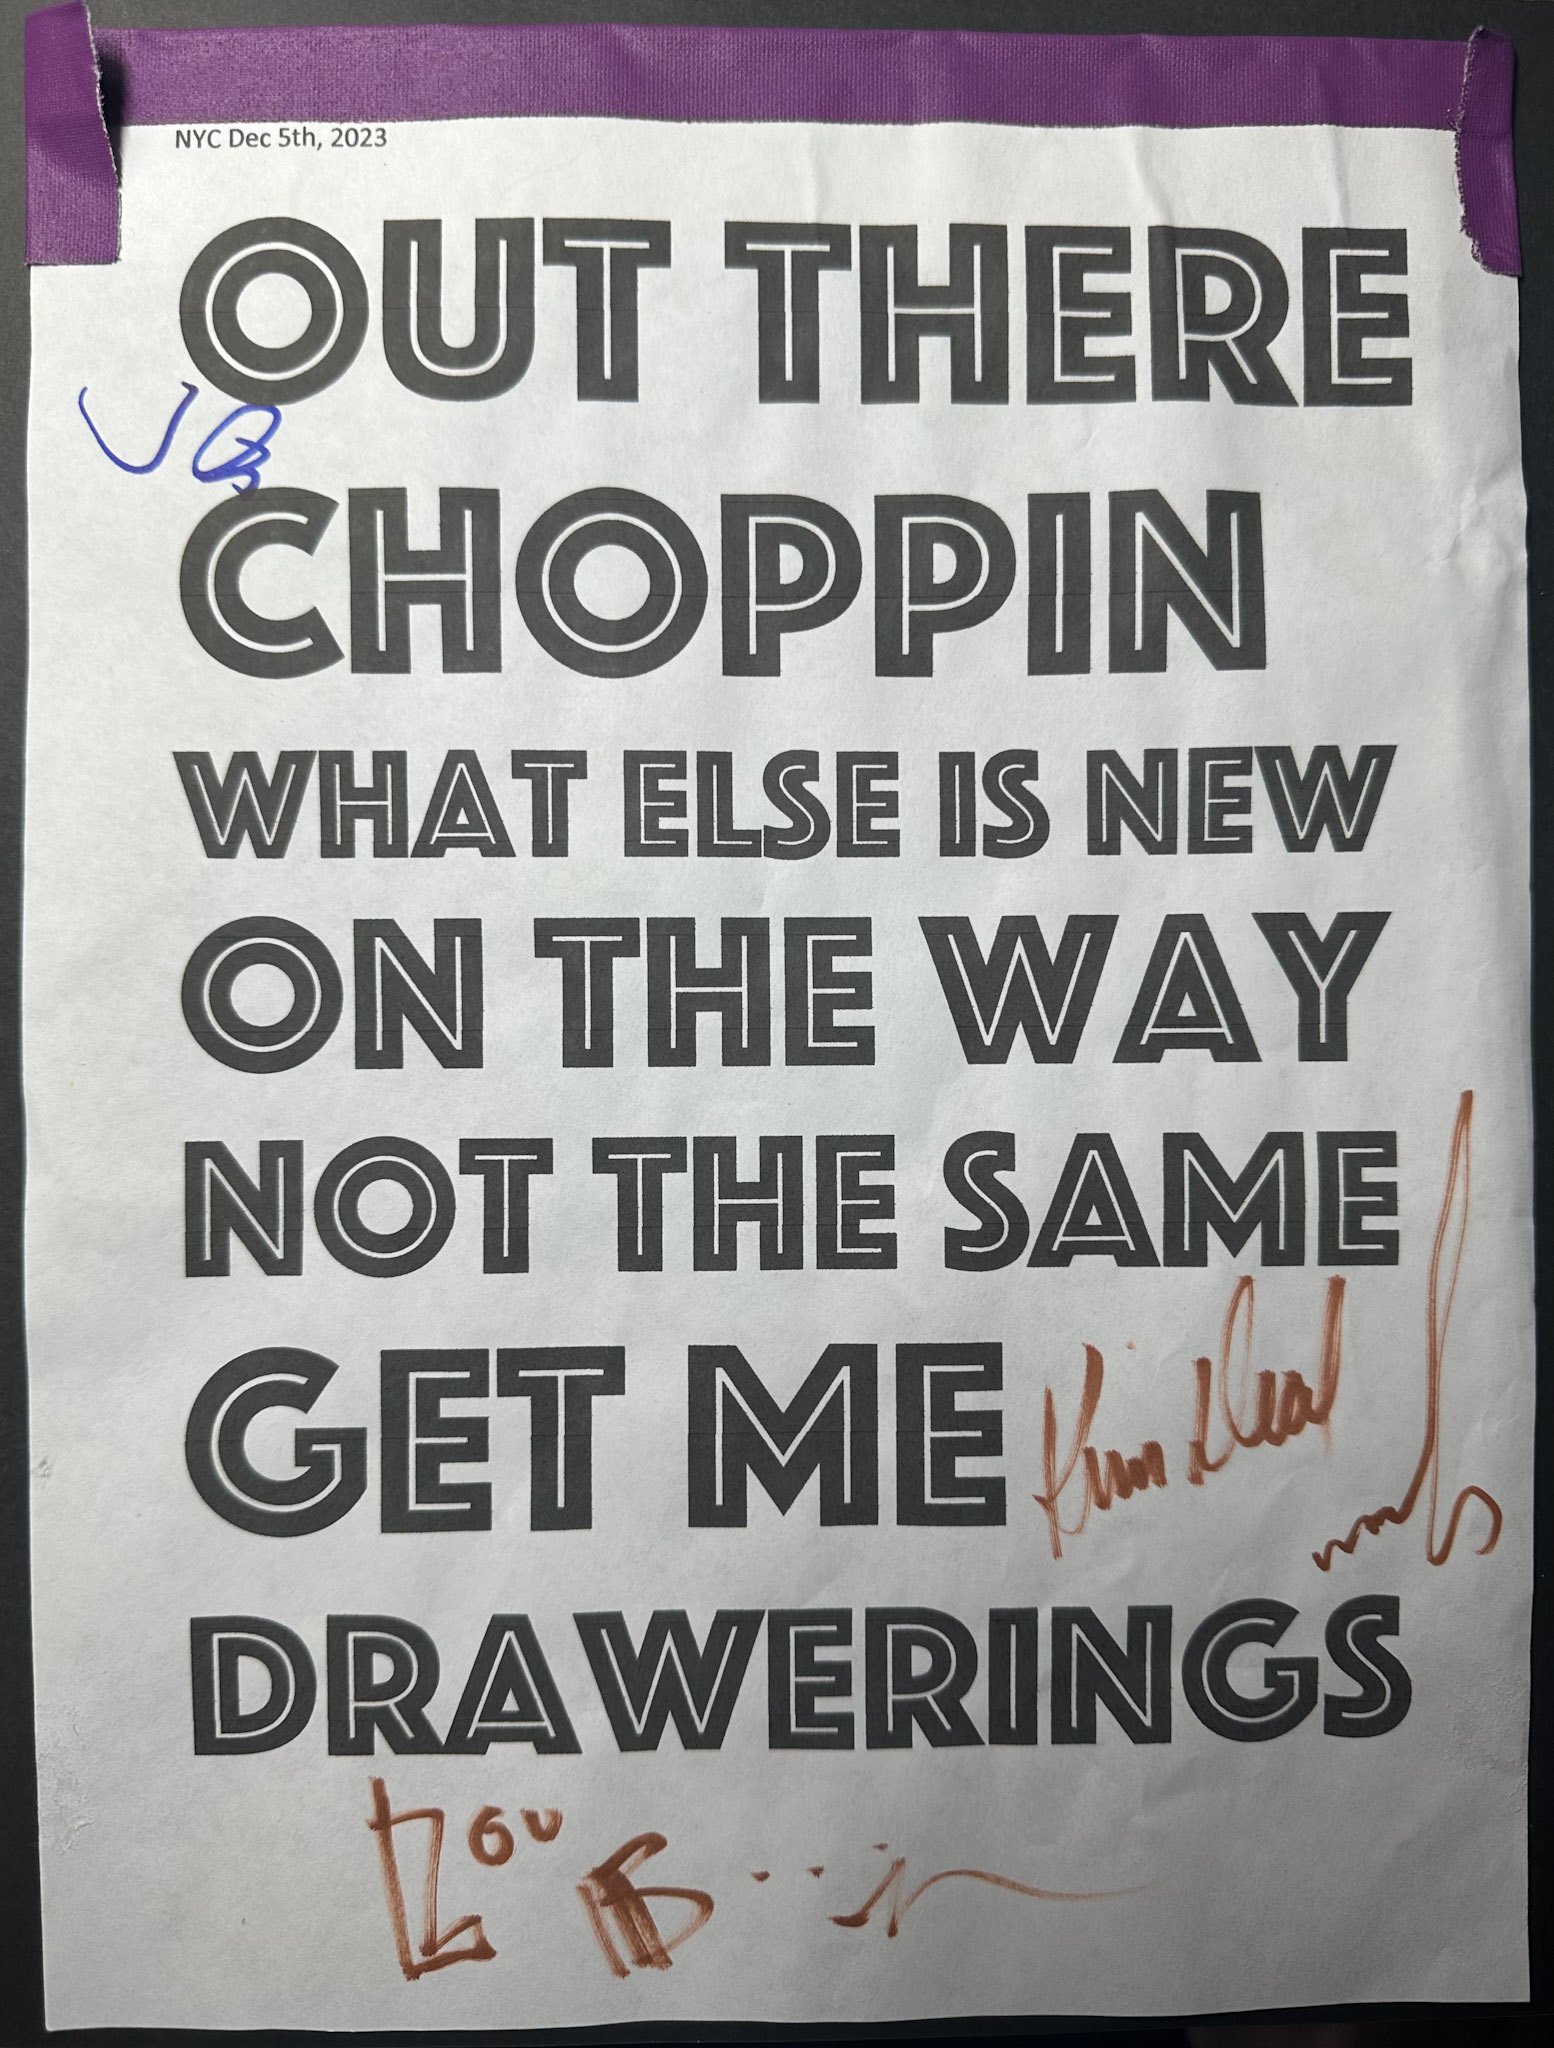 NYC Dec 5th, 2023
OUT THERE
CHOPPIN
WHAT ELSE IS NEW
ON THE WAY
NOT THE SAME
GET ME
Kim Deal
DRAWERINGS
LOU B